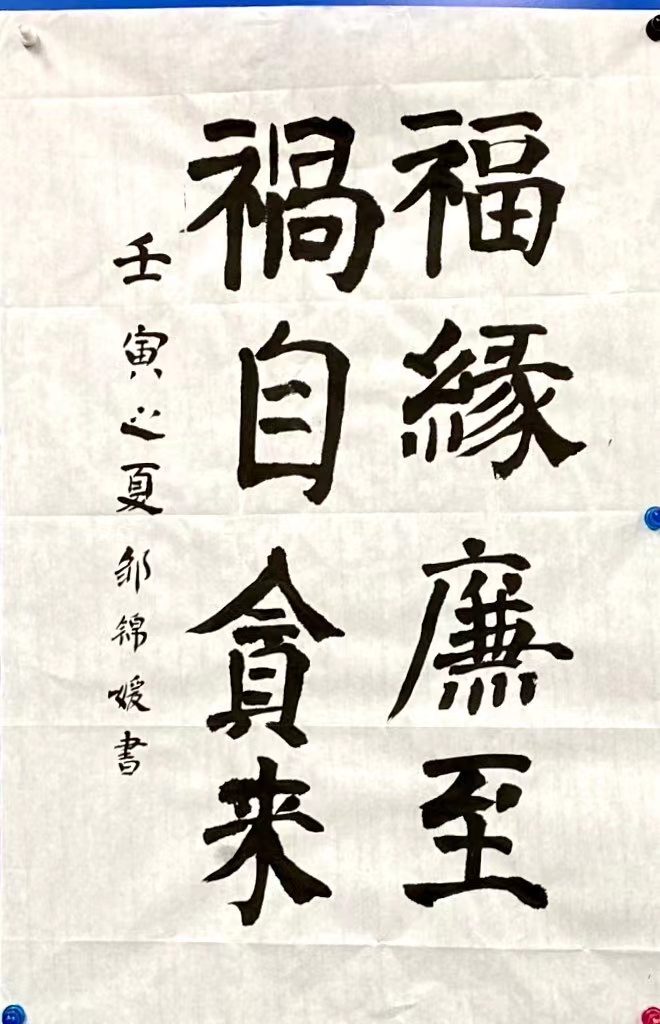 福緣廉至
禍自貪来
壬寅之夏邹锦媛書